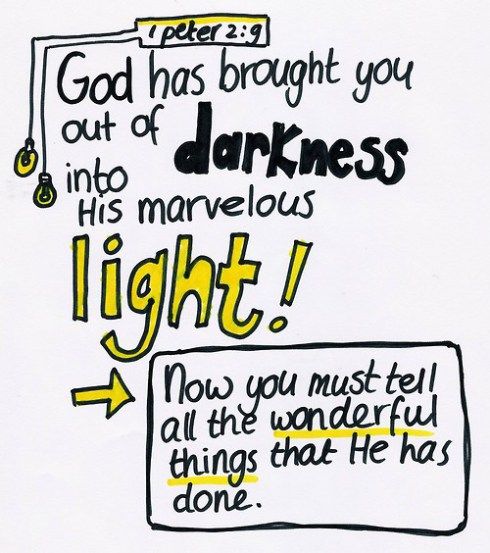 1 peter 2:9
God has brought you
out of darkness
into
His marvelous
light!
Now you must tell
all the wonderful
things that He has
done.